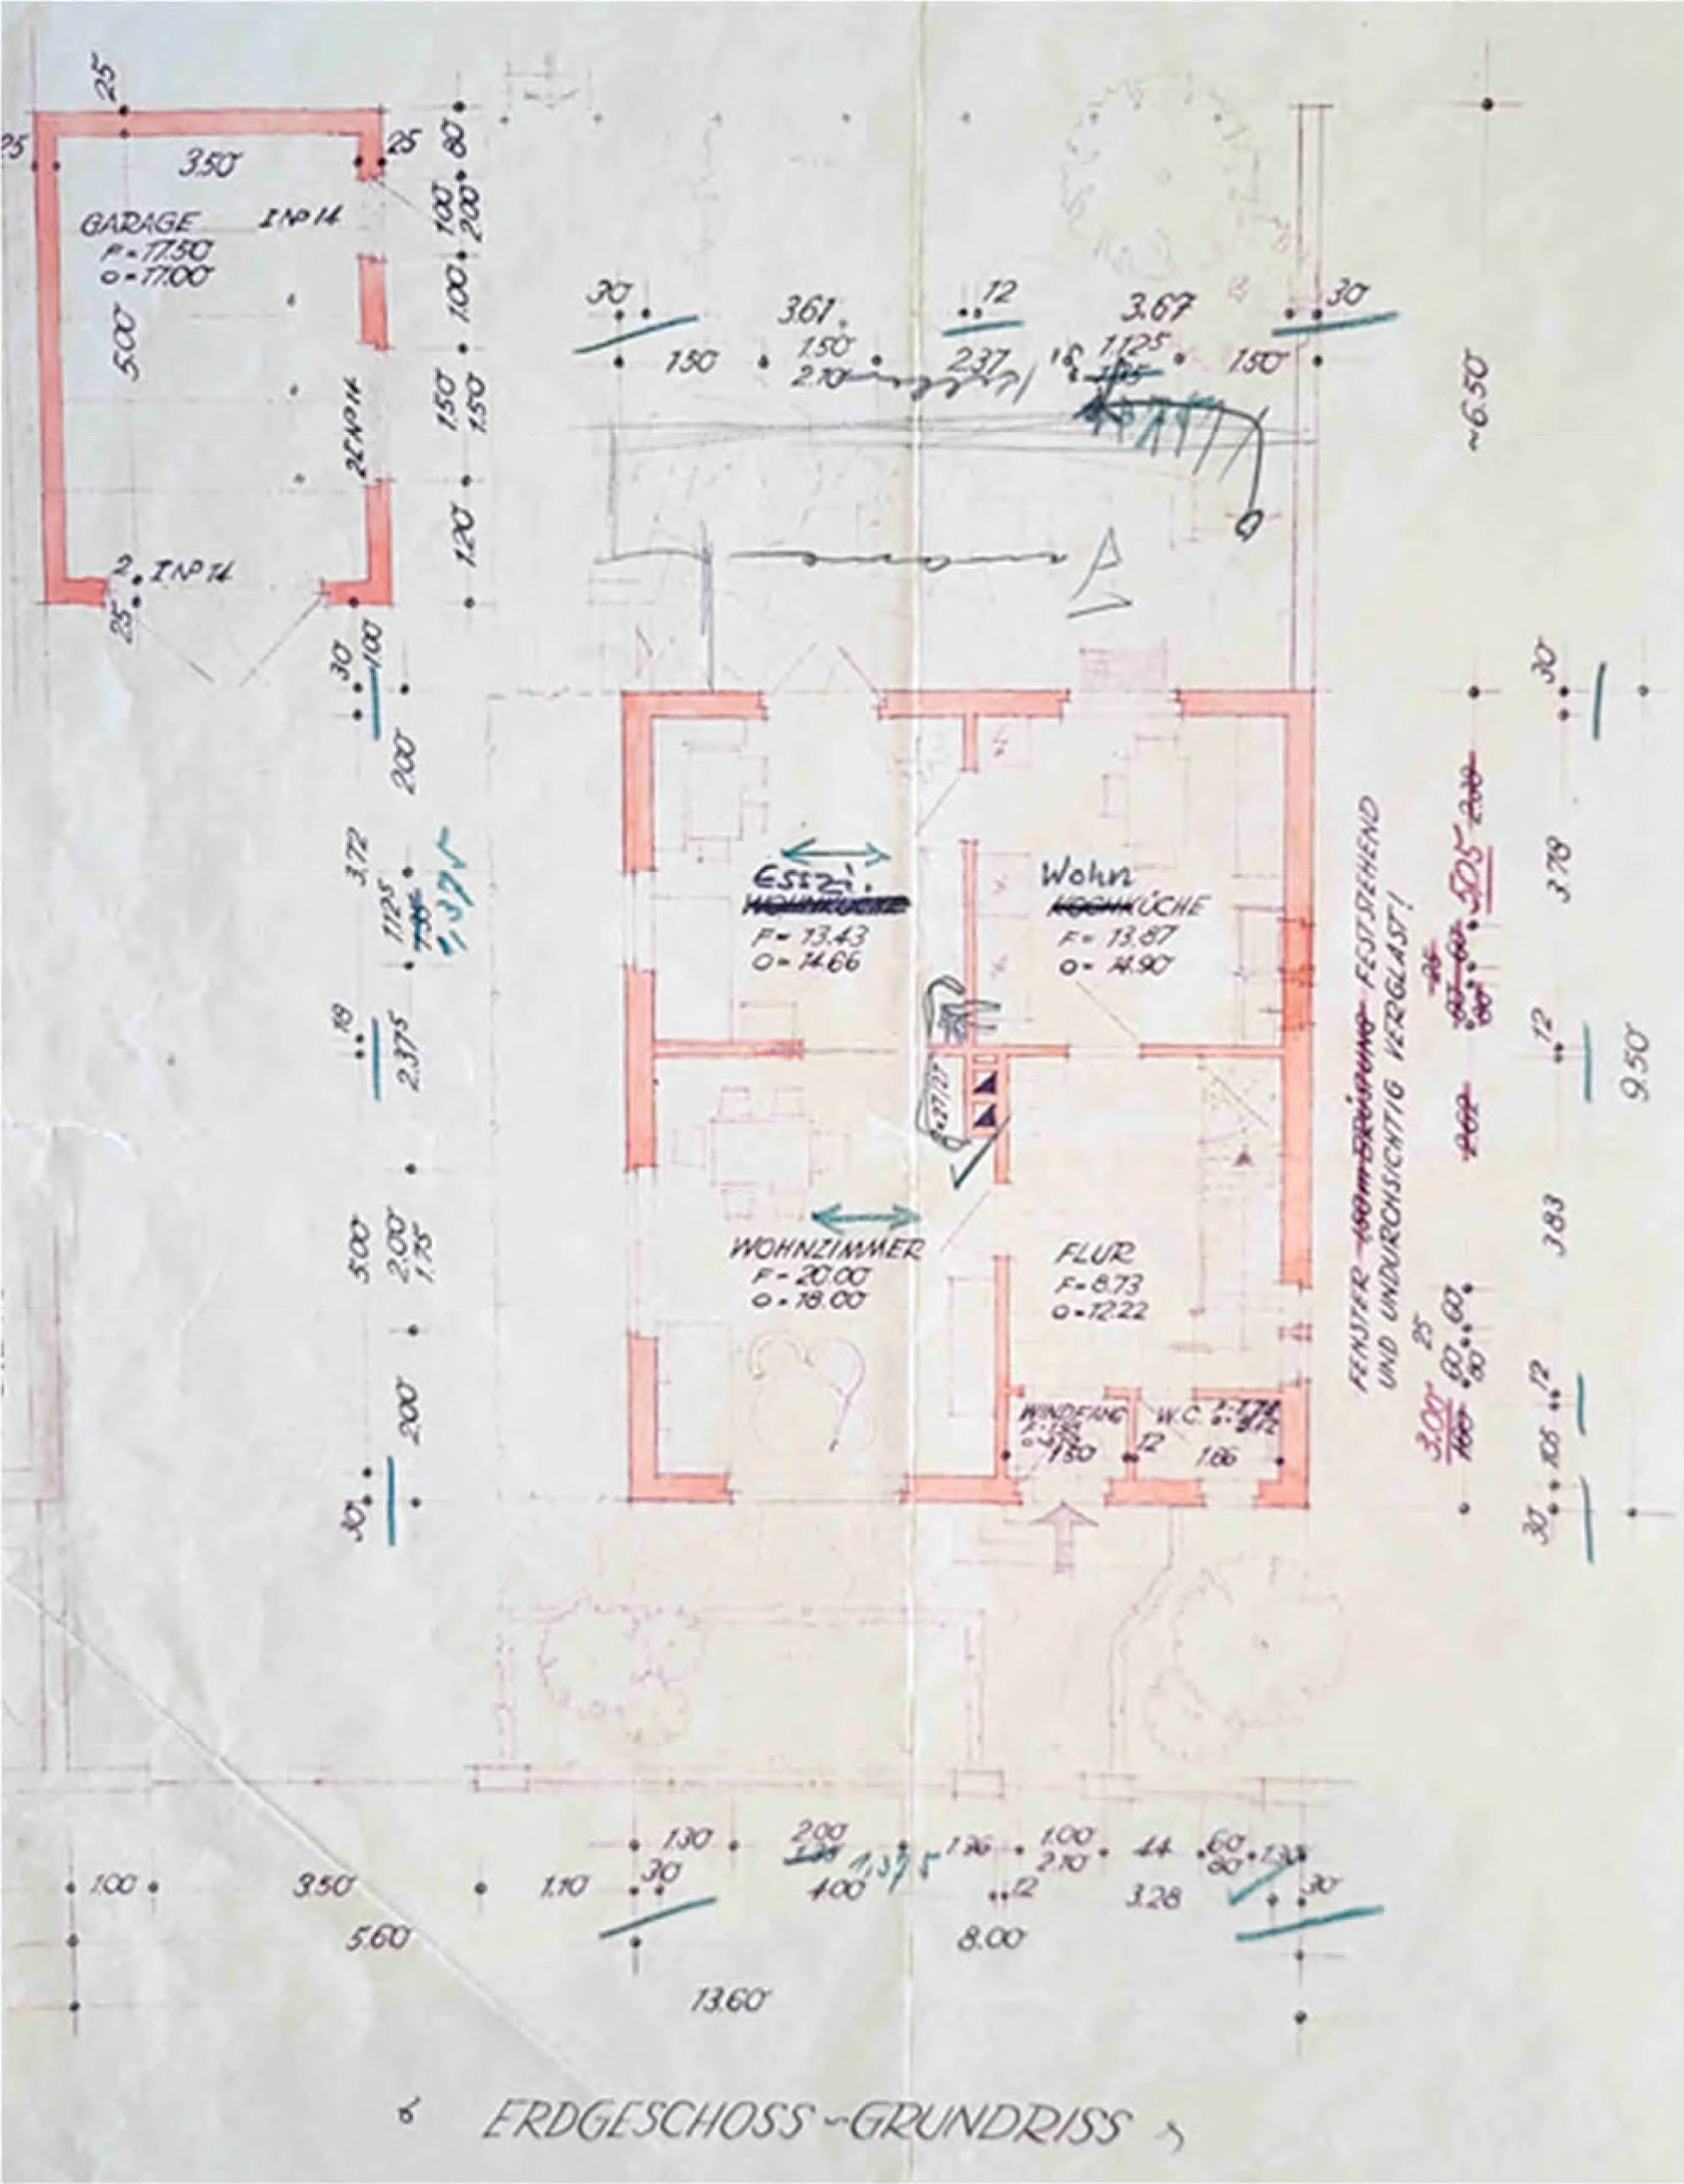 25
25
3.50
25
GARAGE
I NP 14
F = 17.50
O = 17.00
5.00
2 I NP 14
2 I NP 14
25
80
1.00
2.00
1.00
1.50
1.50
1.20
30
3.61
12
3.67
30
1.50
1.50
2.10
2.37
1.125
1.50
~6.50
30
1.00
2.00
3.72
1.125
1,375
18
2.375
5.00
2.00
1.75
2.00
30
Esszi.
WOHNKÜCHE
F = 13.43
O = 14.66
Wohn
KOCHKÜCHE
F = 13.87
O = 14.90
WOHNZIMMER
F = 20.00
O = 18.00
FLUR
F = 8.73
O = 12.22
WINDFANG
1.50
12
W.C.
1.66
FENSTER 150 cm BRÜSTUNG FESTSTEHEND
UND UNDURCHSICHTIG VERGLAST!
2.00
5.05
25
60
60
80
2.02
60
25
60
80
3.00
30
3.78
12
3.83
12
1.05
30
9.50
1.30
2.00
1,375
1.96
1.00
2.10
44
60
80
1.30
1.00
3.50
1.10
30
4.00
12
3.28
30
5.60
8.00
13.60
ERDGESCHOSS-GRUNDRISS